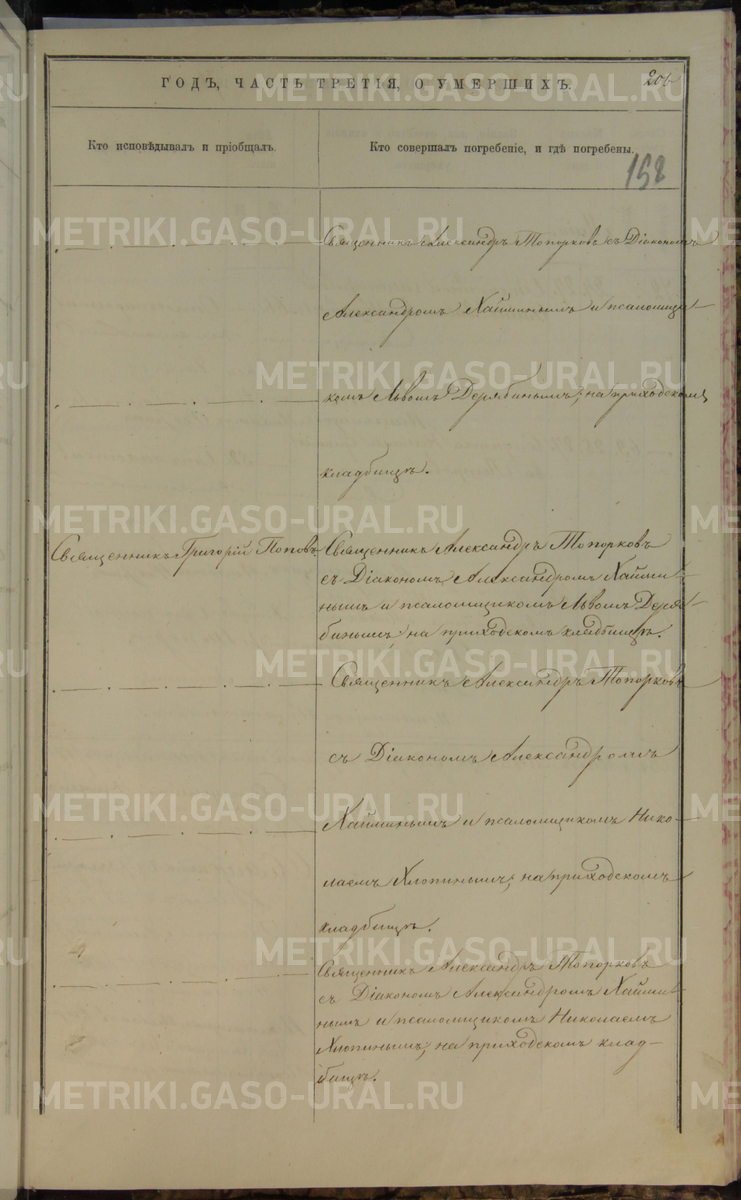 ГОДЪ, ЧАСТЬ ТРЕТІЯ, О УМЕРШИХЪ.
Кто исповѣдывалъ и пріобщалъ.
Кто совершалъ погребеніе, и гдѣ погребены.
158
Священникъ Александръ Топорковъ съ Діакономъ
Александромъ Хайминымъ и псаломщи-
комъ Львомъ Дерябинымъ, на приходскомъ
кладбищѣ.
Священникъ Григорій Поповъ.
Священникъ Александръ Топорковъ
съ Діакономъ Александромъ Хайми-
нымъ и псаломщикомъ Львомъ Деря-
бинымъ, на приходскомъ кладбищѣ.
Священникъ Александръ Топорковъ
съ Діакономъ Александромъ
Хайминымъ и псаломщикомъ Нико-
лаемъ Хлопинымъ, на приходскомъ
кладбищѣ.
Священникъ Александръ Топорковъ
съ Діакономъ Александромъ Хайми-
нымъ и псаломщикомъ Николаемъ
Хлопинымъ, на приходскомъ клад-
бищѣ.
METRIKI.GASO-URAL.RU